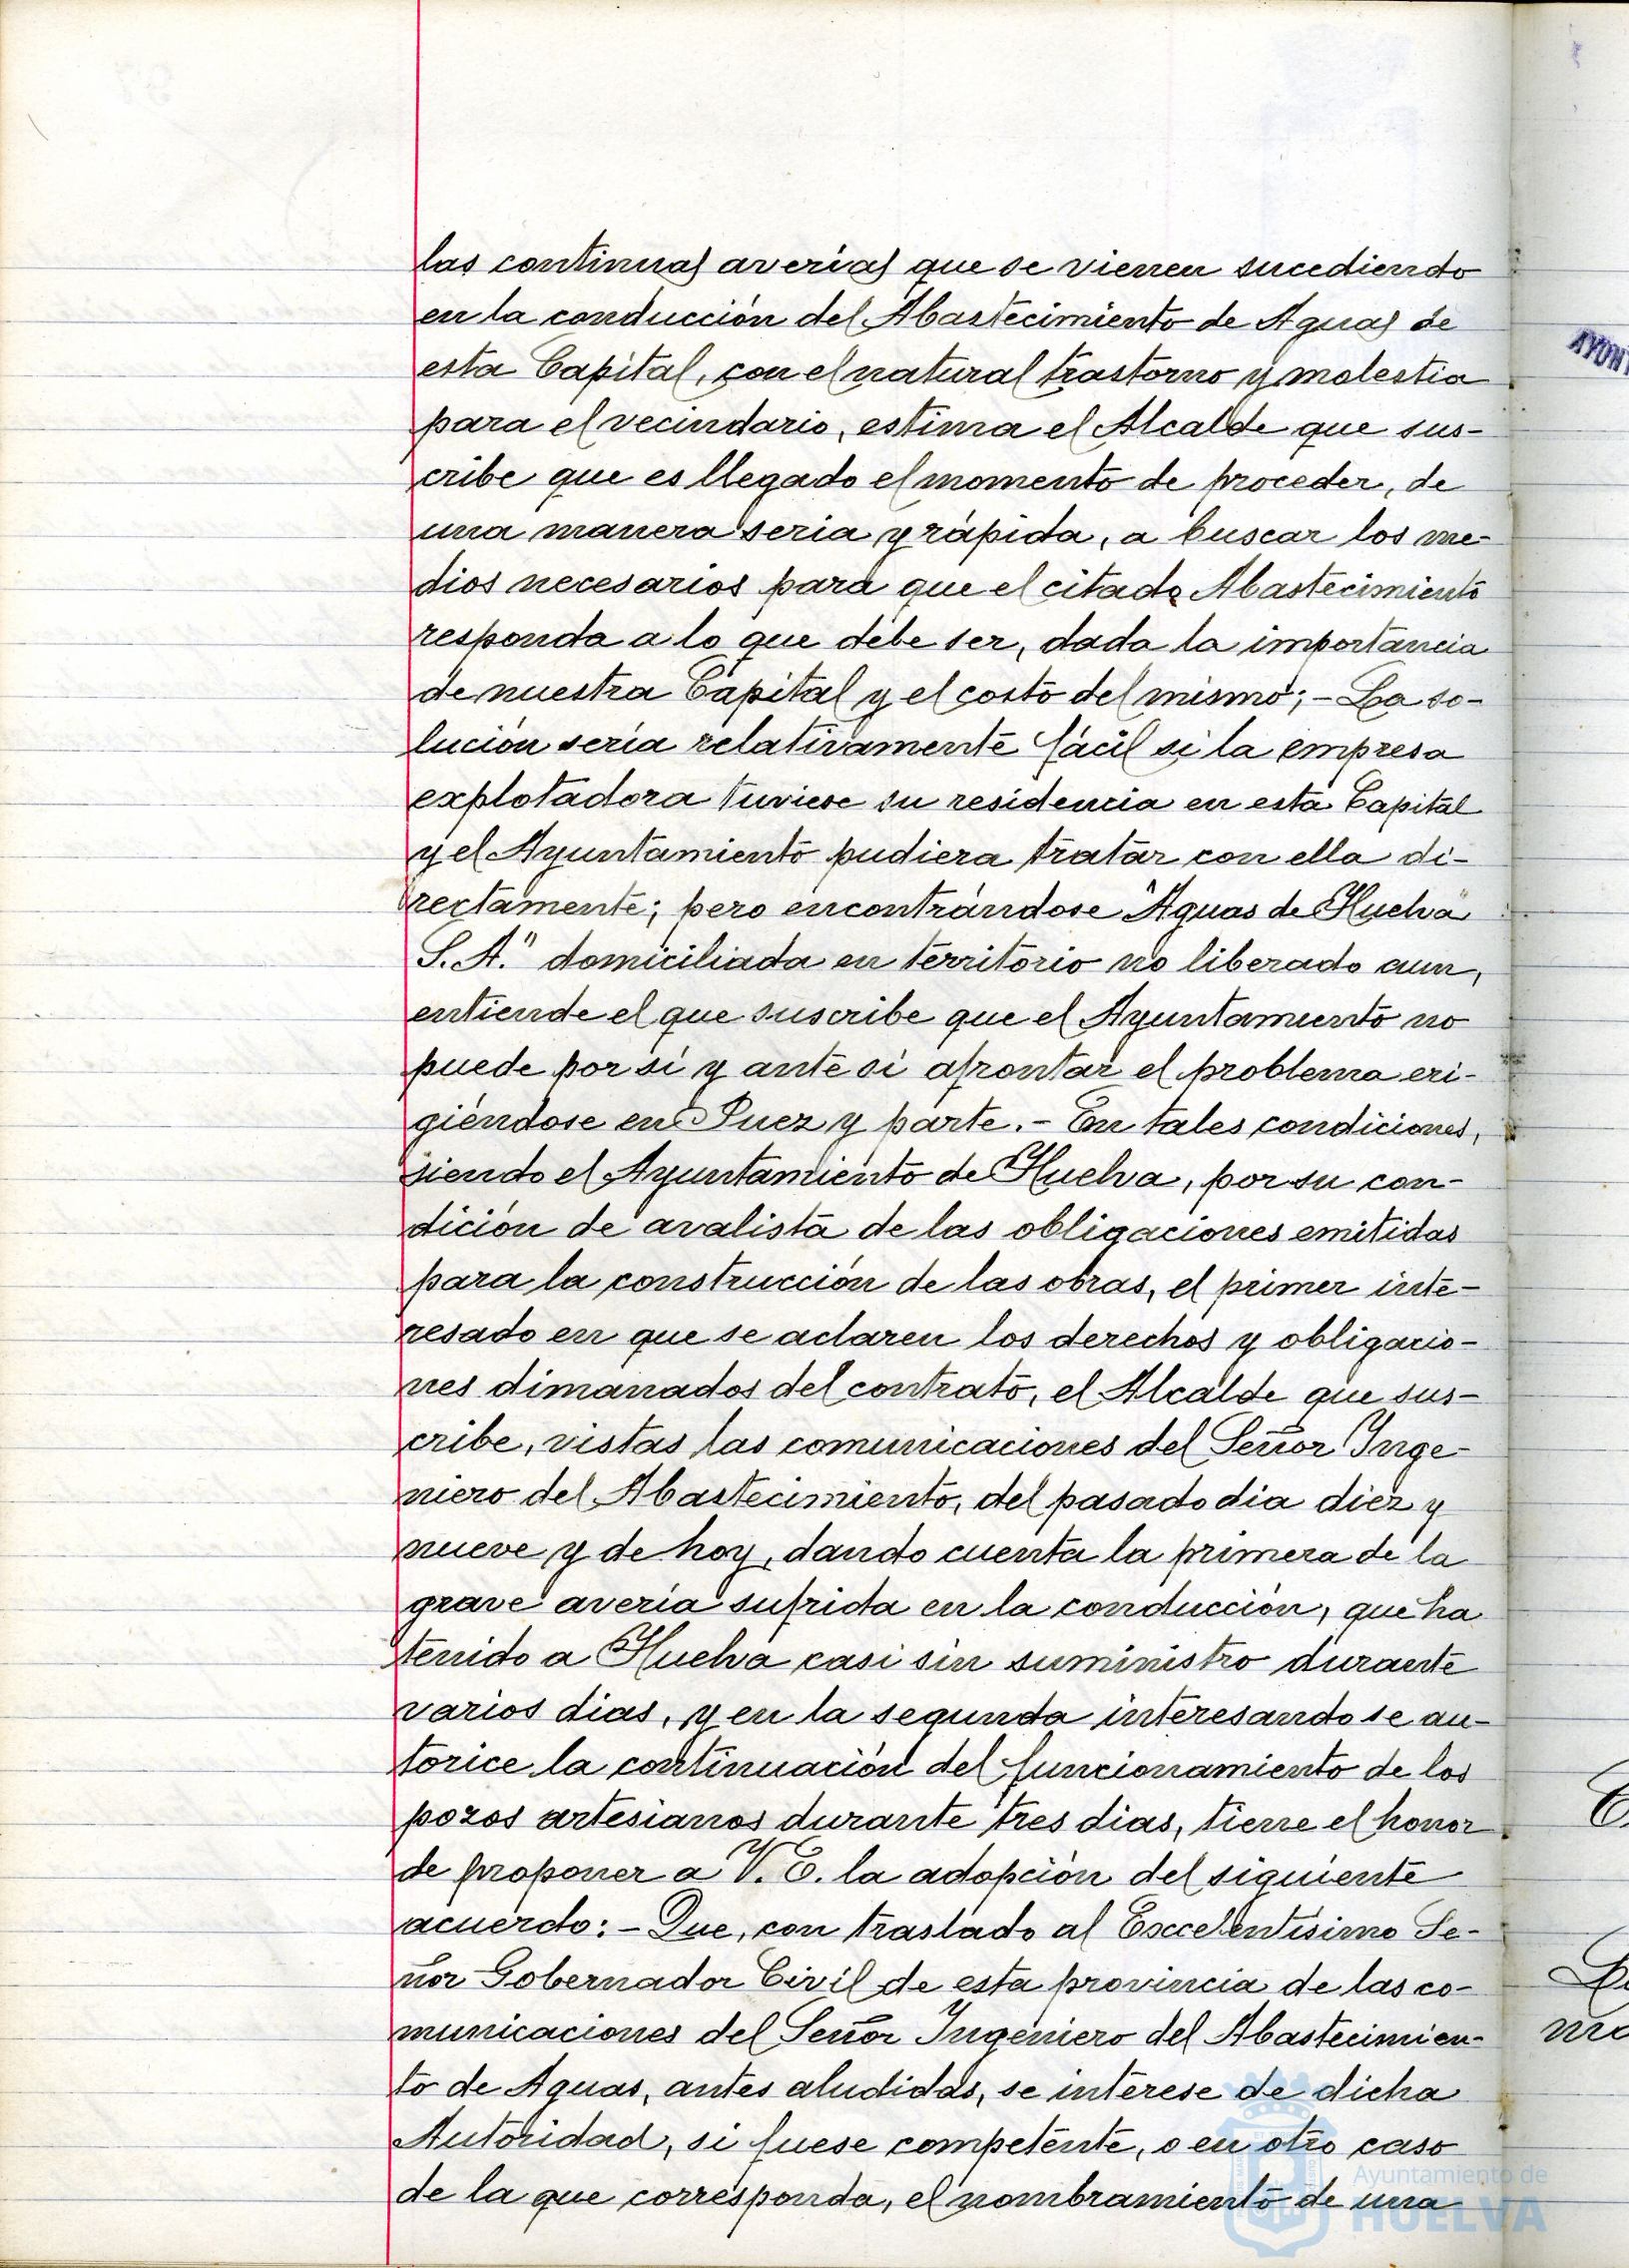 las continuas averias que se vienen sucediendo
en la conducción del Abastecimiento de Aguas de
esta Capital, con el natural trastorno y molestia
para el vecindario, estima el Alcalde que sus-
cribe que es llegado el momento de proceder, de
una manera seria y rápida, a buscar los me-
dios necesarios para que el citado Abastecimiento
responda a lo que debe ser, dada la importancia
de nuestra Capital y el costo del mismo; - La so-
lución seria relativamente fácil si la empresa
explotadora tuviese su residencia en esta Capital
y el Ayuntamiento pudiera tratar con ella di-
rectamente; pero encontrándose "Aguas de Huelva
S. A." domiciliada en territorio no liberado aun,
entiende el que suscribe que el Ayuntamiento no
puede por si y ante si afrontar el problema eri-
giéndose en Juez y parte. - En tales condiciones,
siendo el Ayuntamiento de Huelva, por su con-
dición de avalista de las obligaciones emitidas
para la construcción de las obras, el primer inte-
resado en que se aclaren los derechos y obligacio-
nes dimanados del contrato, el Alcalde que sus-
cribe, vistas las comunicaciones del Señor Inge-
niero del Abastecimiento, del pasado dia diez y
nueve y de hoy, dando cuenta la primera de la
grave averia sufrida en la conducción, que ha
tenido a Huelva casi sin suministro durante
varios dias, y en la segunda interesando se au-
torice la continuación del funcionamiento de los
pozos artesianos durante tres dias, tiene el honor
de proponer a V. E. la adopción del siguiente
acuerdo: - Que, con traslado al Excelentisimo Se-
ñor Gobernador Civil de esta provincia de las co-
municaciones del Señor Ingeniero del Abastecimien-
to de Aguas, antes aludidas, se interese de dicha
Autoridad, si fuese competente, o en otro caso
de la que corresponda, el nombramiento de una
Ayuntamiento de
HUELVA